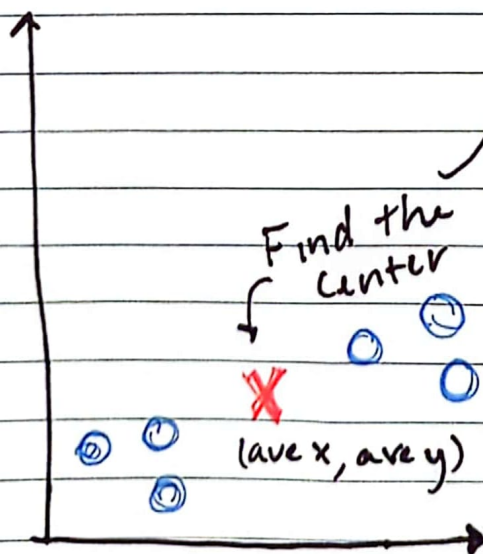 Find the
center
X
(ave x, ave y)